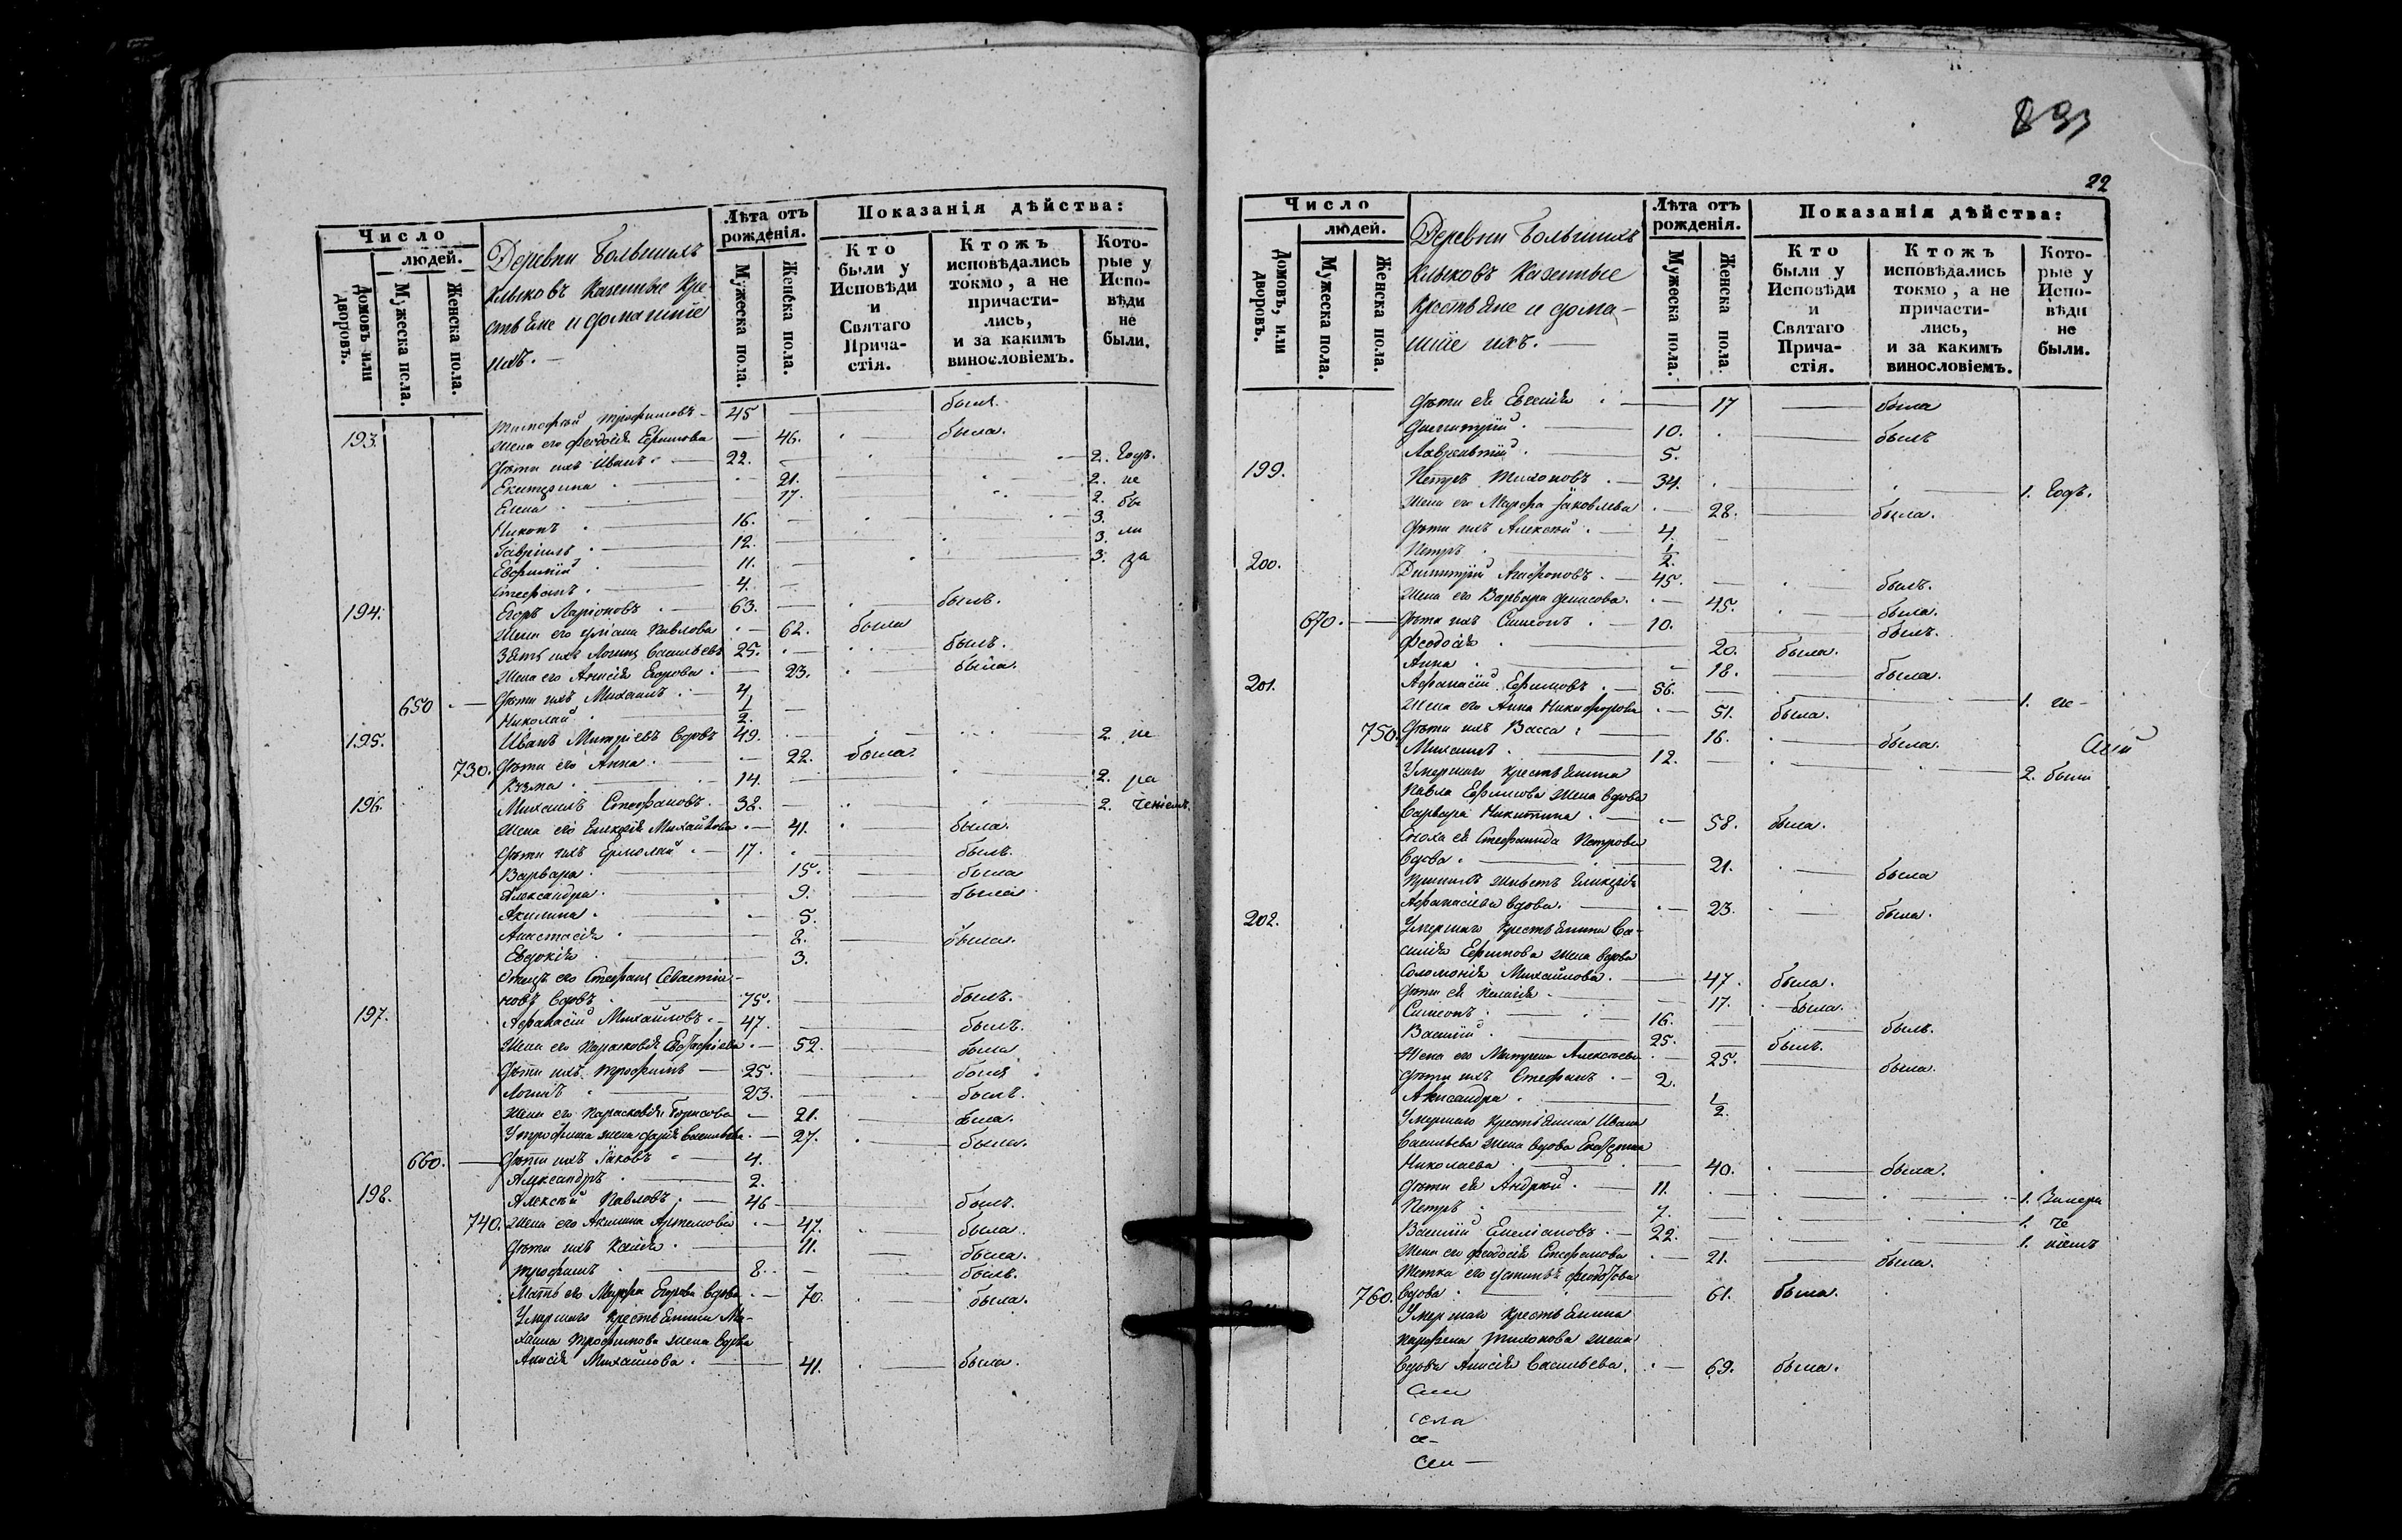 Число
людей.
Домовъ или дворовъ.
Мужеска пола.
Женска пола.
Деревни Большихъ
Клыковъ Казенные Кре-
стьяне и домашніе
ихъ. —
Лѣта отъ рожденія.
Мужеска пола.
Женска пола.
Показанія дѣйства:
Кто были у Исповѣди и Святаго Прича- стія.
Ктожъ исповѣдались токмо, а не причасти- лись, и за какимъ винословіемъ.
Кото- рые у Испо- вѣди не были.
193. Тимофей Трофимовъ — 45 былъ.
Жена его Феодосія Ефимова — 46. была.
Дѣти ихъ Иванъ. 22. 2. Годъ.
Екатерина 21. 2. не
Елена 17. 2. бы
Никонъ 16. 3.
Гавріилъ 12. 3. ли
Евфимій 11. 3. за
Стефанъ 4.
194. Егоръ Ларіоновъ 63. былъ.
Жена его Уліана Павлова 62. была
Зять ихъ Логинъ Васильевъ 25. былъ.
Жена его Анисія Егорова 23. была.
650 Дѣти ихъ Михаилъ 4
Николай 1/2.
195. Иванъ Митріевъ вдовъ 49. 2. не
730. Дѣти его Анна 22. была.
Козма 14. 2. ра
196. Михаилъ Стефановъ 38. 2. ченіемъ.
Жена его Гликерія Михайлова 41. была.
Дѣти ихъ Ермолай 17. былъ.
Варвара 15. была
Александра 9. была
Акилина 5.
Анастасія 8. была.
Евдокія 3.
Отецъ его Стефанъ Севастіа-
новъ вдовъ 75. былъ.
197. Афанасій Михайловъ 47. былъ.
Жена его Парасковія Евстафіева 52. была
Дѣти ихъ Трофимъ 25. былъ
Логинъ 23. былъ.
Жена его Парасковія Борисова 21. была.
У Трофима жена Дарія Васильева 27. была.
660. Дѣти ихъ Іаковъ 4.
Александръ 2.
198. Алексѣй Павловъ 46 былъ.
740. Жена его Акилина Артемова 47. была.
Дѣти ихъ 11. была.
Трофимъ 8. былъ.
Мать его Марфа Егорова вдова 70. была.
Умершаго Крестьянина Ми-
хаила Трофимова жена вдова
Анисія Михайлова 41. была.
22
Число
людей.
Домовъ, или дворовъ.
Мужеска пола.
Женска пола.
Деревни Большихъ
Клыковъ Казенные
Крестьяне и дома-
шніе ихъ. —
Лѣта отъ рожденія.
Мужеска пола.
Женска пола.
Показанія дѣйства:
Кто были у Исповѣди и Святаго Прича- стія.
Ктожъ исповѣдались токмо, а не причасти- лись, и за какимъ винословіемъ.
Кото- рые у Испо- вѣди не были.
Дѣти ея Евгенія 17 была
Димитрій 10. былъ
Лаврентій 5.
199. Петръ Тихоновъ 34. 1. Годъ.
Жена его Марфа Іаковлева 28. была.
Дѣти ихъ Алексѣй 4.
Петръ 1/2.
200. Димитрій Агафоновъ 45. былъ.
Жена его Варвара Денисова 45. была.
670. Дѣти ихъ Симеонъ 10. былъ.
Феодосія 20. была.
Анна 18. была.
201. Афанасій Ефимовъ 56. 1. не-
Жена его Анна Никифорова 51. была.
750. Дѣти ихъ Васса 16. была.
Михаилъ 12. 2. были
Умершаго Крестьянина
Павла Ефимова жена вдова
Варвара Никитина 58. была.
Сноха ея Стефанида Петрова
вдова 21. была
Гликерія
Афанасіева вдова 23. была.
202. Умершаго Крестьянина Ва-
силія Ефимова жена вдова
Соломонія Михайлова 47. была.
Дѣти ея Пелагія 17. была.
Симеонъ 16. былъ.
Василій 25. былъ.
Жена его Матрена Алексѣева 25. была.
Дѣти ихъ Стефанъ 2.
Александра 1/2.
Умершаго Крестьянина Ивана
Васильева жена вдова Екатерина
Николаева 40. была.
Дѣти ея Андрей 11. 1.
Петръ 7. 1.
Василій Емеліановъ 22. 1.
Жена его Феодосія Стефанова 21. была.
Тетка его Устинья Федотова
760. вдова 61. была.
Умершаго Крестьянина
Парфена Тихонова жена
вдова Анисія Васильева 69. была.